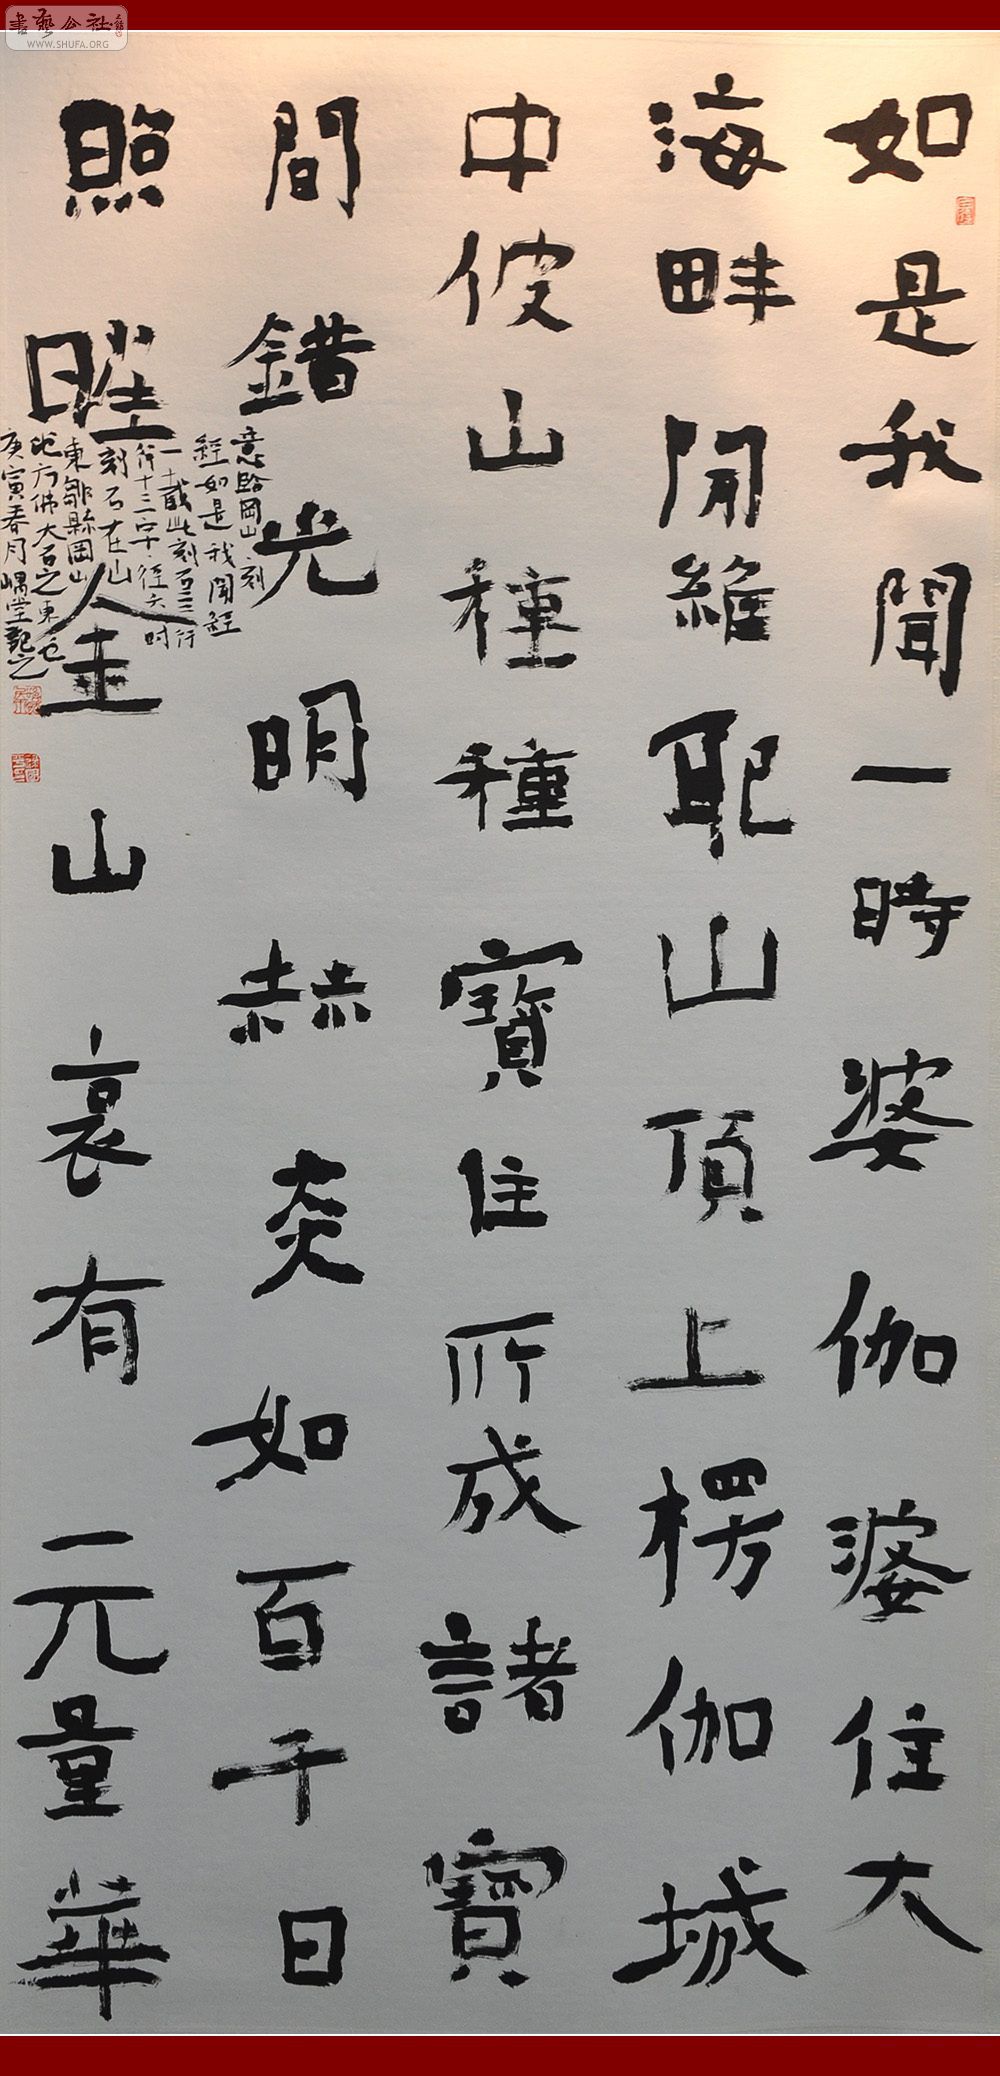 書藝公社
WWW.SHUFA.ORG
如是我聞一時婆伽婆住大
海畔閒維耶山頂上楞伽城
中彼山種種寶住所成諸寶
間錯光明赫炎如百千日
照曜金山裏有元量華
意臨岡山刻
經如是我聞經
一載此刻石三行
行十三字徑六时
刻石在山
東鄒縣岡山
北方佛大石之東
庚寅春月嵎堂記之